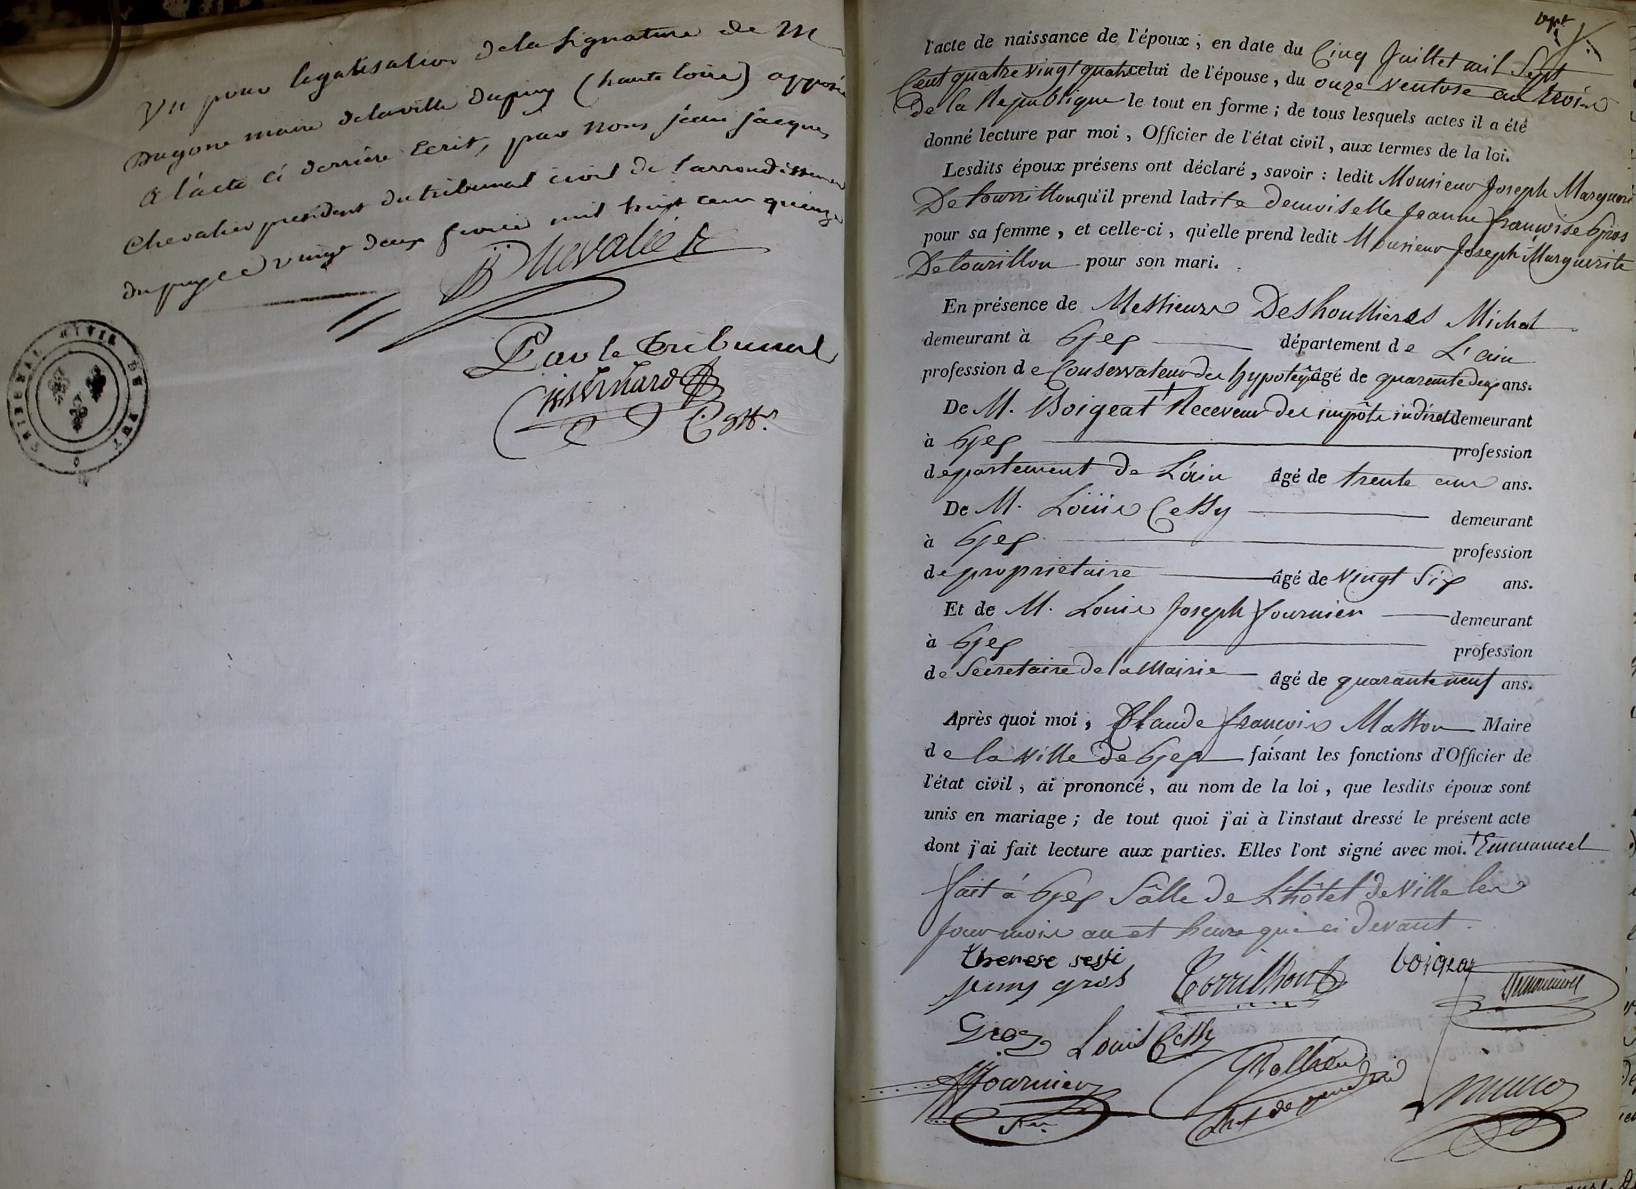 Vu pour legalisation de la signature de M
Dugone maire de la ville Dupuy (haute loire) apposée
a l'acte ci derriere Ecrit, par nous jean jacques
Chevalier president du tribunal civil de l'arrondissement
du puy ce vingt deux fevrier mil huit cent quinze
Chevalier
Par le Tribunal
Gff.
TRIBUNAL CIVIL DU PUY
l'acte de naissance de l'époux, en date du Cinq Juillet mil Sept
Cent quatre vingt quatre celui de l'épouse, du onze ventose an trois
de la Republique le tout en forme ; de tous lesquels actes il a été
donné lecture par moi, Officier de l'état civil, aux termes de la loi.
Lesdits époux présens ont déclaré, savoir : ledit Monsieur Joseph Marguerite
De tourrillon qu'il prend ladite demoiselle Jeanne francoise Gros
pour sa femme, et celle-ci, qu'elle prend ledit Monsieur Joseph Marguerite
De tourillon pour son mari.
En présence de Messieurs Deshoullieres Michel
demeurant à Gex département de L'ain
profession de Conservateur des hypoteq âgé de quarente deux ans.
De M. Boigeat Receveur des impôts indirets demeurant
à Gex profession
departement de L'ain âgé de trente cinq ans.
De M. Louis Cessy demeurant
à Gex profession
de proprietaire âgé de vingt Six ans.
Et de M. Louis Joseph fournier demeurant
à Gex profession
de Secretaire de la Mairie âgé de quarante neuf ans.
Après quoi moi, Claude francois Matton Maire
de la ville de Gex faisant les fonctions d'Officier de
l'état civil, ai prononcé, au nom de la loi, que lesdits époux sont
unis en mariage ; de tout quoi j'ai à l'instaut dressé le présent acte
dont j'ai fait lecture aux parties. Elles l'ont signé avec moi. † Emmanuel
fait à Gex Sâlle de L'hôtel de ville les
jour mois an et heure que ci devant.
therese sessi
jenny gros Torrilhon boigeat Emmanuel
Gros Louis Cessy
fournier